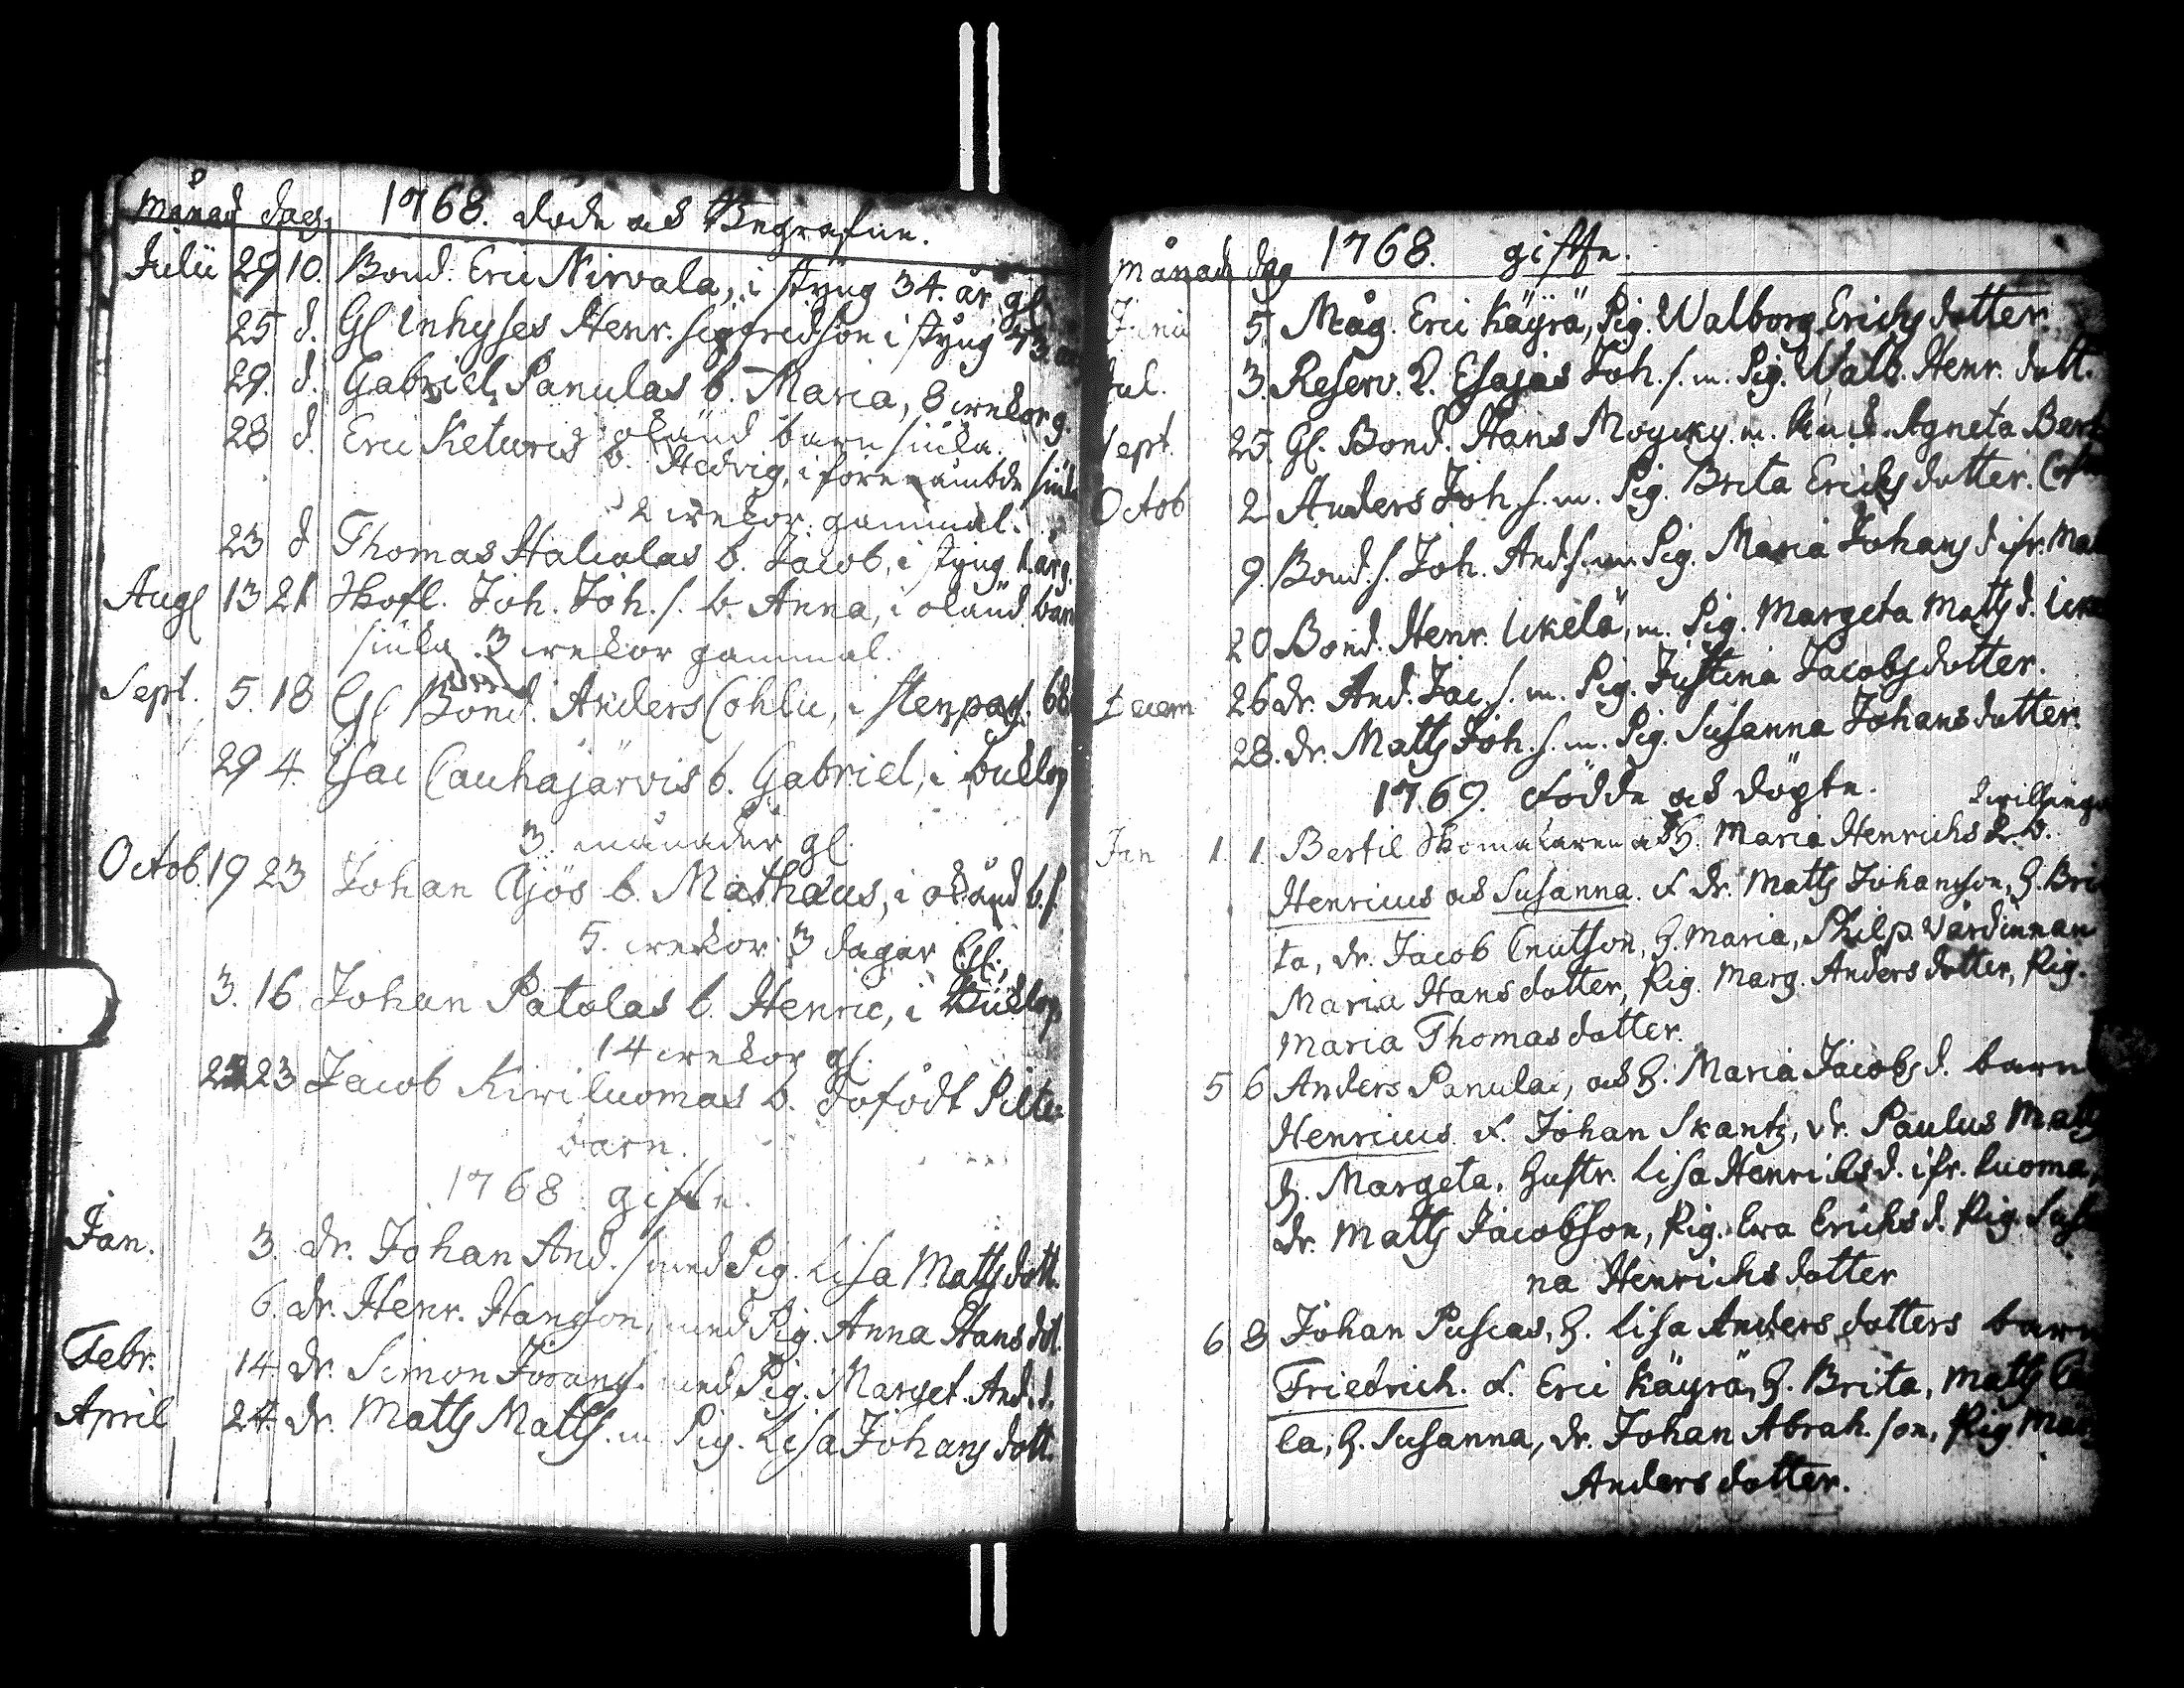 Månad dag. 1768. döde och Begrafne.
Julii 29 10. Bond. Eric Nirvala, i styng 34. år gl
25 d. Gl inhyses Henr. Sigfredson i styng 73.
29. d. Gabriel Panulas b. Maria, 8 wekor g.
okänd barnsiuka.
28 d. Eric Keturis b. Hedvig, i förenämbde siuk
2 wekor gammal.
23 d Thomas Halialas b. Jacob, i styng 1. år g.
Aug 13 21 Skofl. Joh. Joh. s. b. Anna, i okänd barn
siuka 3 wekor gammal.
Sept. 5. 18 Gl Bond. Anders Cohlu, i stenpass. 68
29 4. Esac Cauhajärvis b. Gabriel, i buklop
3. månader gl.
Octob. 19 23 Johan Ajös b. Mathæus, i okänd b. s
5. wekor 3 dagar gl.
3. 16 Johan Patolas b. Henric, i Buklop
14 wekor gl.
23 Jacob Kiriluomas b. dofödt Pilte
barn.
1768 gifte.
Jan. 3. dr. Johan And. s med Pig. Lisa Matts dott.
6. dr. Henr. Hanson, med Pig. Anna Hans dot.
Febr. 14. dr. Simon Jörans. med Pig. Marget. And. d.
April 24. dr. Matts Matts. m Pig. Lisa Johans dott.
Månad dag 1768. giffte.
Junii 5. Måg. Eric Käyrä, Pig. Walborg Erichs dotter.
Jul. 3. Reserv. Esajas Joh. s. m. Pig. Walb. Henr. dott.
Sept. 25. Gl. Bond. Hans Moycky. m. Agneta Bert
Octob 2 Anders Joh. s. m. Pig. Brita Erichs dotter.
9. Bond. s. Joh. And. s. m. Pig. Maria Johans d ifr. Mat
20 Bond. Henr. Ukelä, m. Pig. Margeta Matts d.
Decem 26 dr. And. Jac. s. m. Pig. Justina Jacobs dotter.
28. dr. Matts Joh. s. m. Pig. Susanna Johans dotter.
1769. födde och döpte. twillingar
Jan 1. 1. Bertil Skomakaren och H. Maria Henrichs d. b.
Henricus och Susanna. f. dr. Matts Johanson, H. Bri
ta, dr. Jacob Cnutson, H. Maria, Philp. Värdinnan
Maria Hans dotter, Pig. Marg. Anders dotter, Pig.
Maria Thomas dotter.
5 6 Anders Panula, och H. Maria Jacobs d. barn
Henricus. f. Johan Skantz, dr. Paulus Matts
H. Margeta, Hustr. Lisa Henrichs d. ifr. luoma,
dr. Matts Jacobson, Pig. Ewa Erichs d. Pig. Susa
na Henrichs dotter
6 8 Johan Puscas, H. Lisa Anders dotters barn
Friedrich. f. Eric Käyrä, H. Brita, Matts
la, H. Susanna, dr. Johan Abrah. son, Pig Marg
Anders dotter.